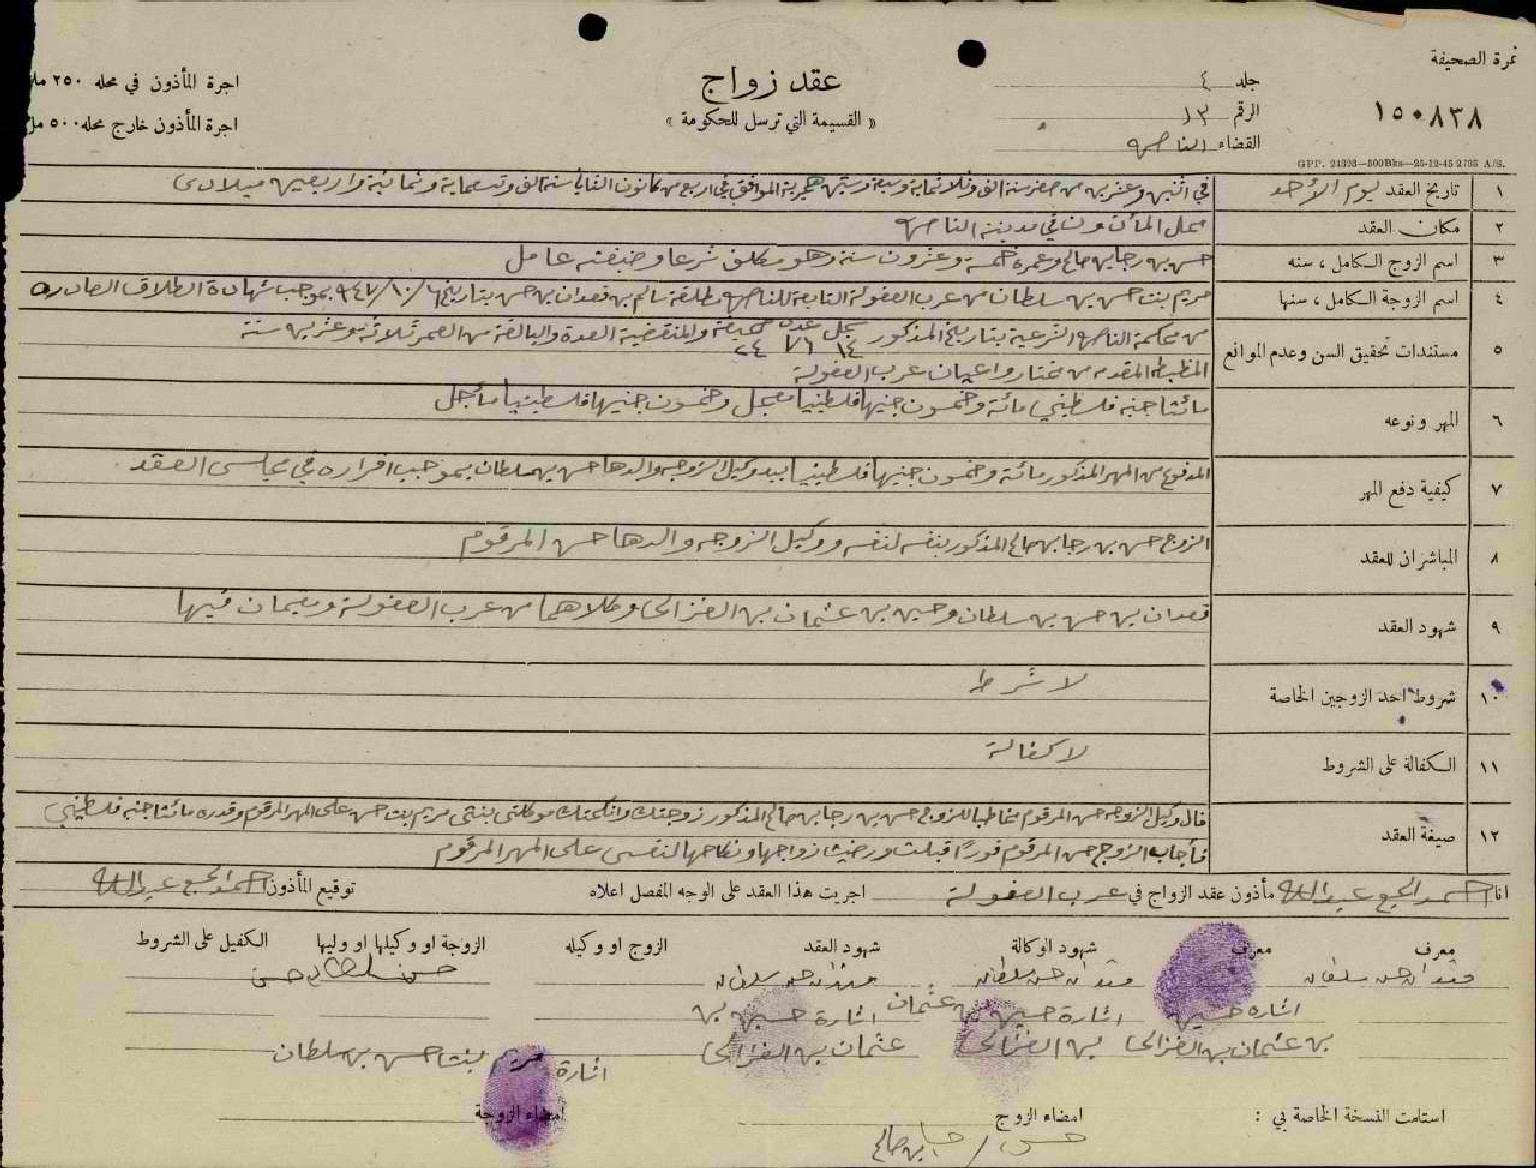 نمرة الصحيفة
١٥٠٨٣٨
GPP. 24393—500Bks—25-12-45 2735 A/S.
جلد ٤
الرقم ١٣
القضاء الناصره
عقد زواج
« القسيمة التي ترسل للحكومة »
اجرة المأذون في محله ٢٥٠ مل
اجرة المأذون خارج محله ٥٠٠ مل
١ تاريخ العقد ليوم الأحد في اثنين وعشرين من صفر سنة الف وثلاثماية وسبعة وستين هجرية الموافق في اربع من كانون الثاني سنة الف وتسعماية وثمانية واربعين ميلادي
٢ مكان العقد محل المأذون في مدينة الناصره
٣ اسم الزوج الكامل ، سنه حسن بن رجا بن صالح وعمره خمسة وعشرون سنة وهو مكلف شرعا وضيفته عامل
٤ اسم الزوجة الكامل ، سنها مريم بنت حسن بن سلطان من عرب الصفولة التابعة للناصره مطلقة سالم بن قعدان بن حسن بتاريخ ٦/١٠/٩٤٧ بموجب شهادة الطلاق الصادره
من محكمة الناصره الشرعية بتاريخ المذكور سجل عدد صحيفة والمنقضية العدة والبالغة من العمر ثلاثة وعشرين سنة
١٤ ٧٦ ٢٤
٥ مستندات تحقيق السن وعدم الموانع المظبطه المقدمه من مختار واعيان عرب الصفولة
٦ المهر ونوعه مائتا جنيه فلسطيني مائة وخمسون جنيها فلسطينيا معجل وخمسون جنيها فلسطينيا مأجل
٧ كيفية دفع المهر المدفوع من المهر المذكور مائة وخمسون جنيها فلسطينيا بيد وكيل الزوجه والدها حسن بن سلطان بموجب اقراره في مجلس العقد
٨ المباشران للعقد الزوج حسن بن رجا بن صالح المذكور بنفسه لنفسه ووكيل الزوجه والدها حسن المرقوم
٩ شهود العقد قعدان بن حسن بن سلطان وحسين بن عثمان بن الغزالي وكلاهما من عرب الصفولة ومقيمان فيها
١٠ شروط احد الزوجين الخاصة لا شرط
١١ الكفالة على الشروط لا كفالة
١٢ صيغة العقد قال وكيل الزوجه حسن المرقوم مخاطبا للزوج حسن بن رجا بن صالح المذكور زوجتك وانكحتك موكلتي بنتي مريم بنت حسن على المهر المرقوم وقدره مائتا جنيه فلسطيني
فأجاب الزوج حسن المرقوم فورًا قبلت ورضيت زواجها ونكاحها لنفسي على المهر المرقوم
انا احمد الحج عبدالله مأذون عقد الزواج في عرب الصفولة اجريت هذا العقد على الوجه المفصل اعلاه توقيع المأذون احمد الحج عبدالله
معرف معرف شهود الوكالة شهود العقد الزوج او وكيله الزوجة او وكيلها او وليها الكفيل على الشروط
قعدان حسن سلطان قعدان حسن سلطان قعدان حسن سلطان حسن سلطان حسن
اشارة حسين اشارة حسين بن عثمان اشارة حسين بن
بن عثمان بن الغزالي بن الغزالي عثمان بن الغزالي
اشارة مريم بنت حسن بن سلطان
استلمت النسخة الخاصة بي : امضاء الزوج امضاء الزوجة
حسن رجا بن صالح